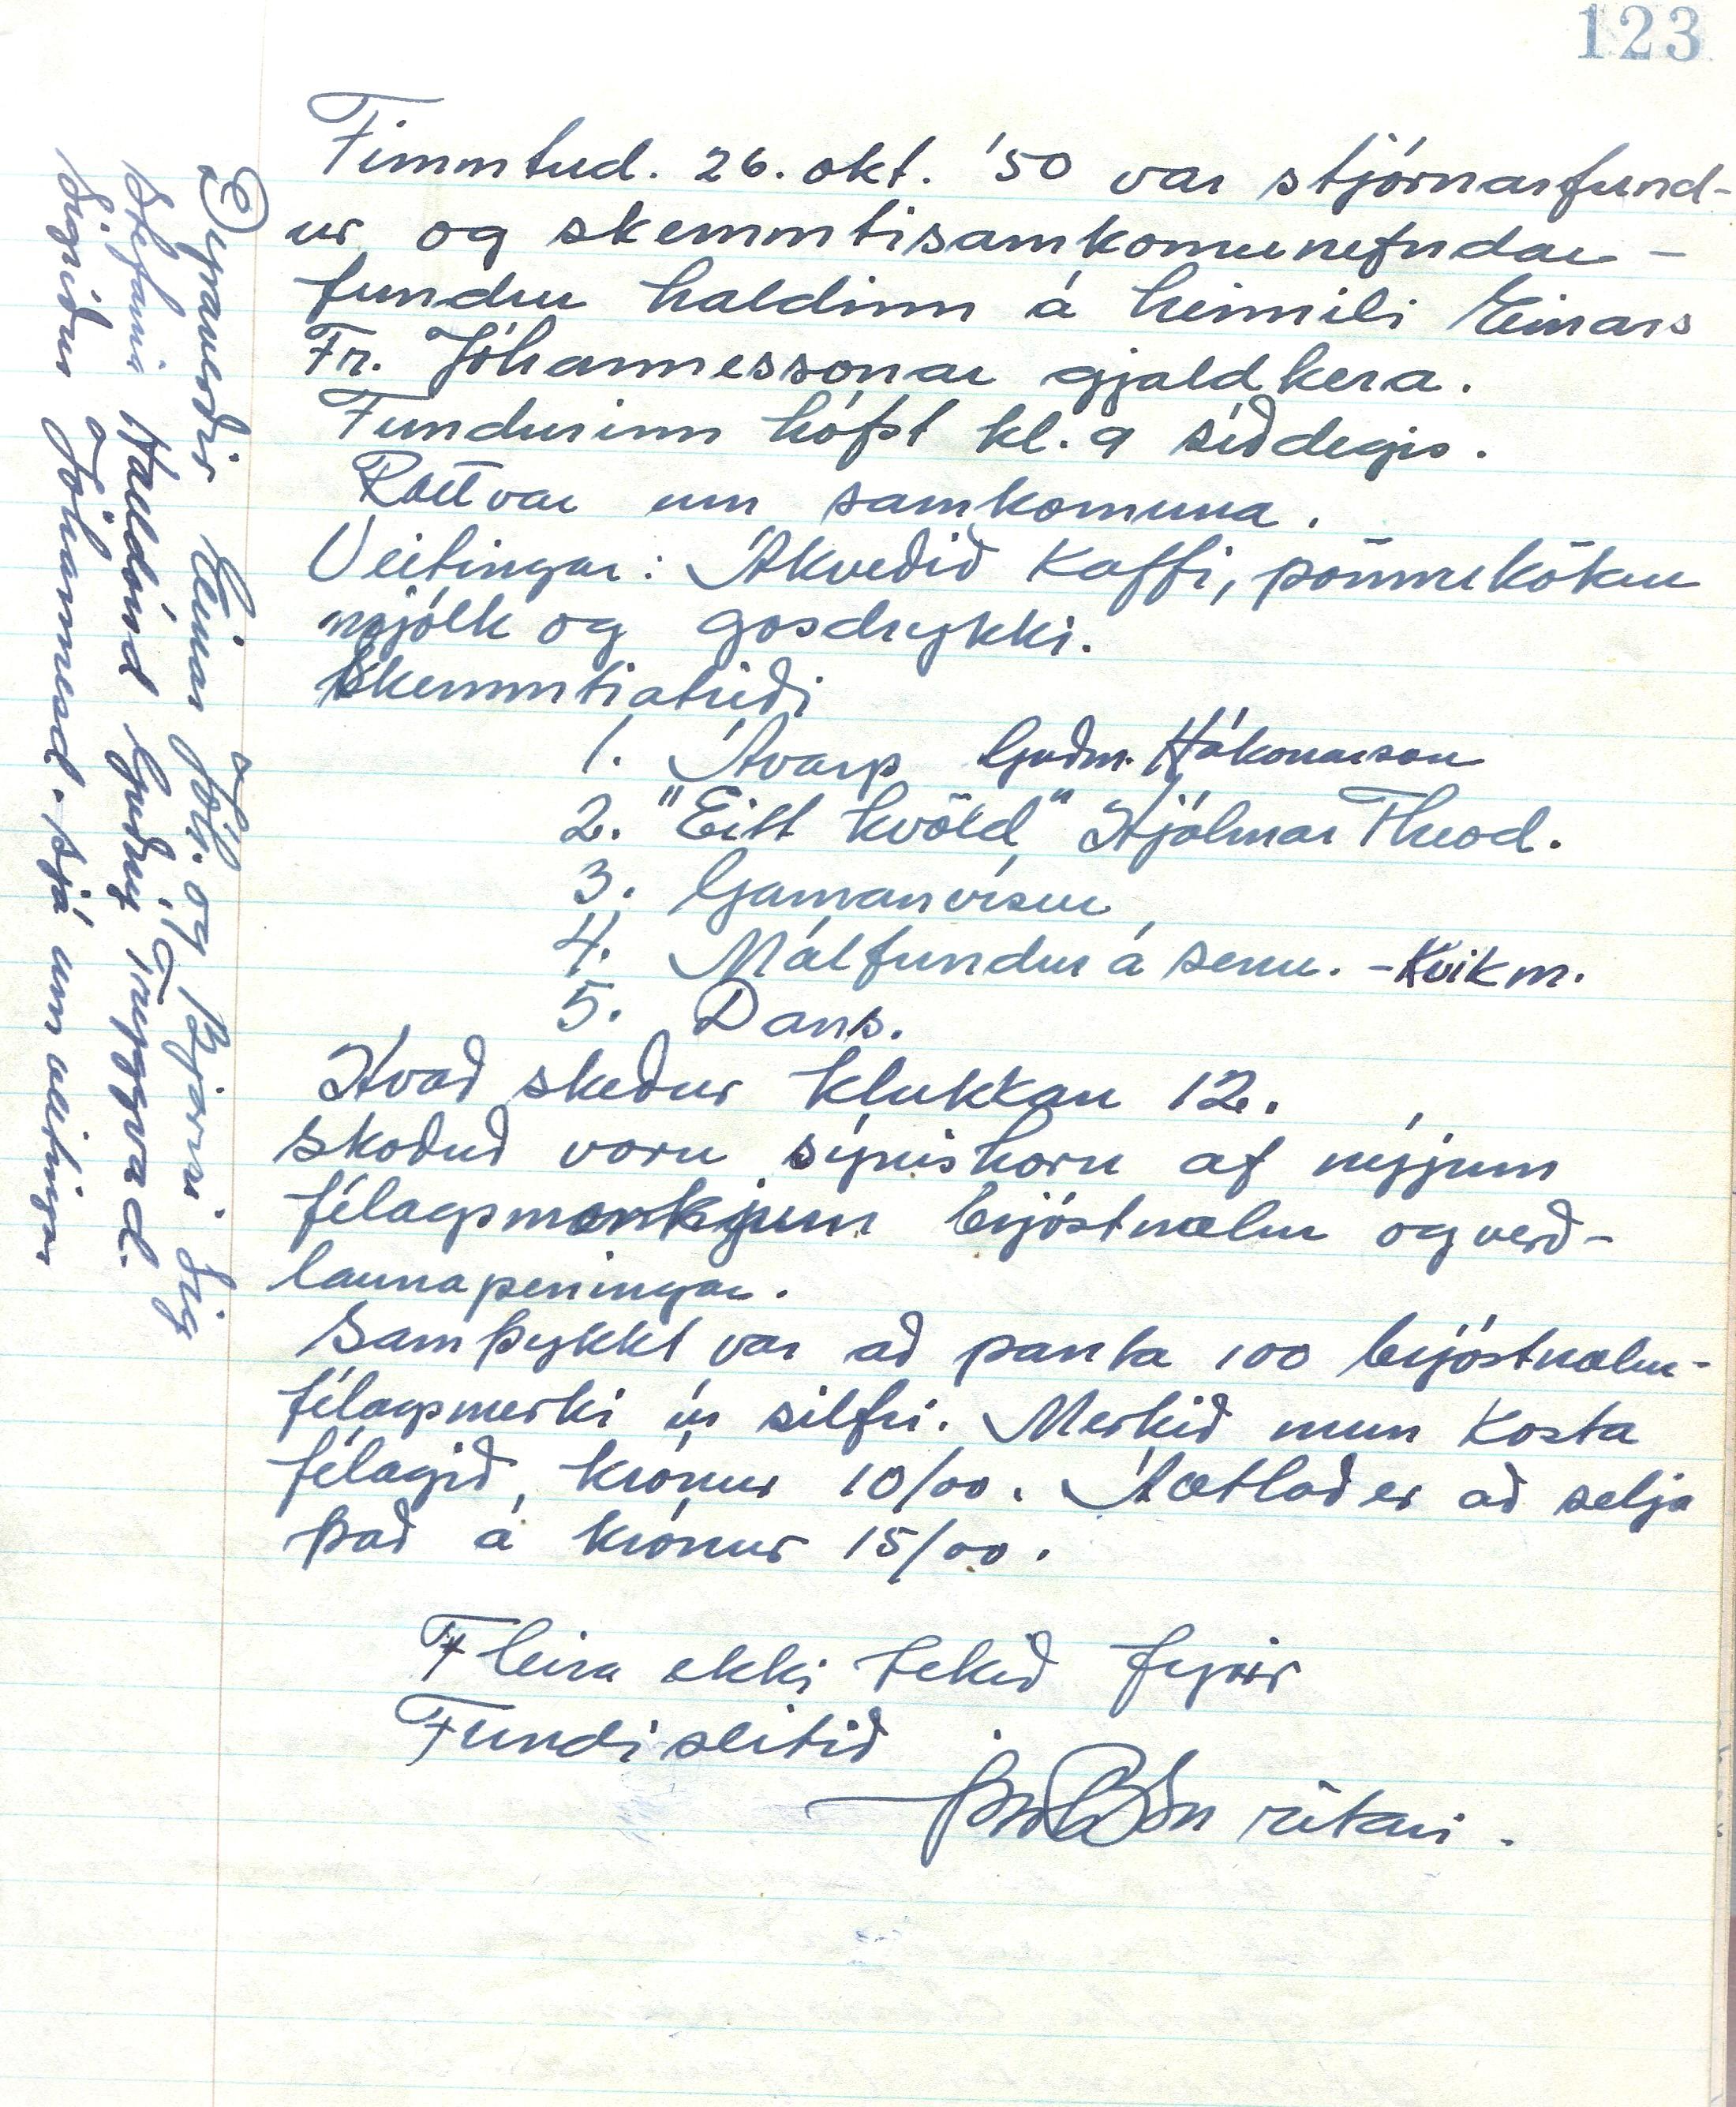 123
Fimmtud. 26. okt. '50 var stjórnarfund-
ur og skemmtisamkomunefndar-
fundur haldinn á heimili Einars
Fr. Jóhannessonar gjaldkera.
Fundurinn hófst kl. 9 síðdegis.
Rætt var um samkomuna.
Veitingar: Ákveðið Kaffi, pönnukökur
mjólk og gosdrykki.
Skemmtiatriði
1. Ávarp Guðm. Hákonarson
2. "Eitt kvöld" Hjálmar Theod.
3. Gamanvísur
4. Málfundur á senu. - Kvikm.
5. Dans.
Hvað skeður klukkan 12.
Skoðuð voru sýnishorn af nýjum
félagsmerkjum brjóstnælur og verð-
launapeningar.
Samþykkt var að panta 100 brjóstnælu-
félagsmerki úr silfri. Merkið mun kosta
félagið, krónur 10/00. Áætlað er að selja
það á krónur 15/00.
Fleira ekki tekið fyrir
Fundi slitið
ritari.
Dyraverðir Einar Jóh. og Bjarni Sig
Stefanía Halldórsd Guðný Tryggvad.
Sigríður Jóhannesd. sjá um veitingar